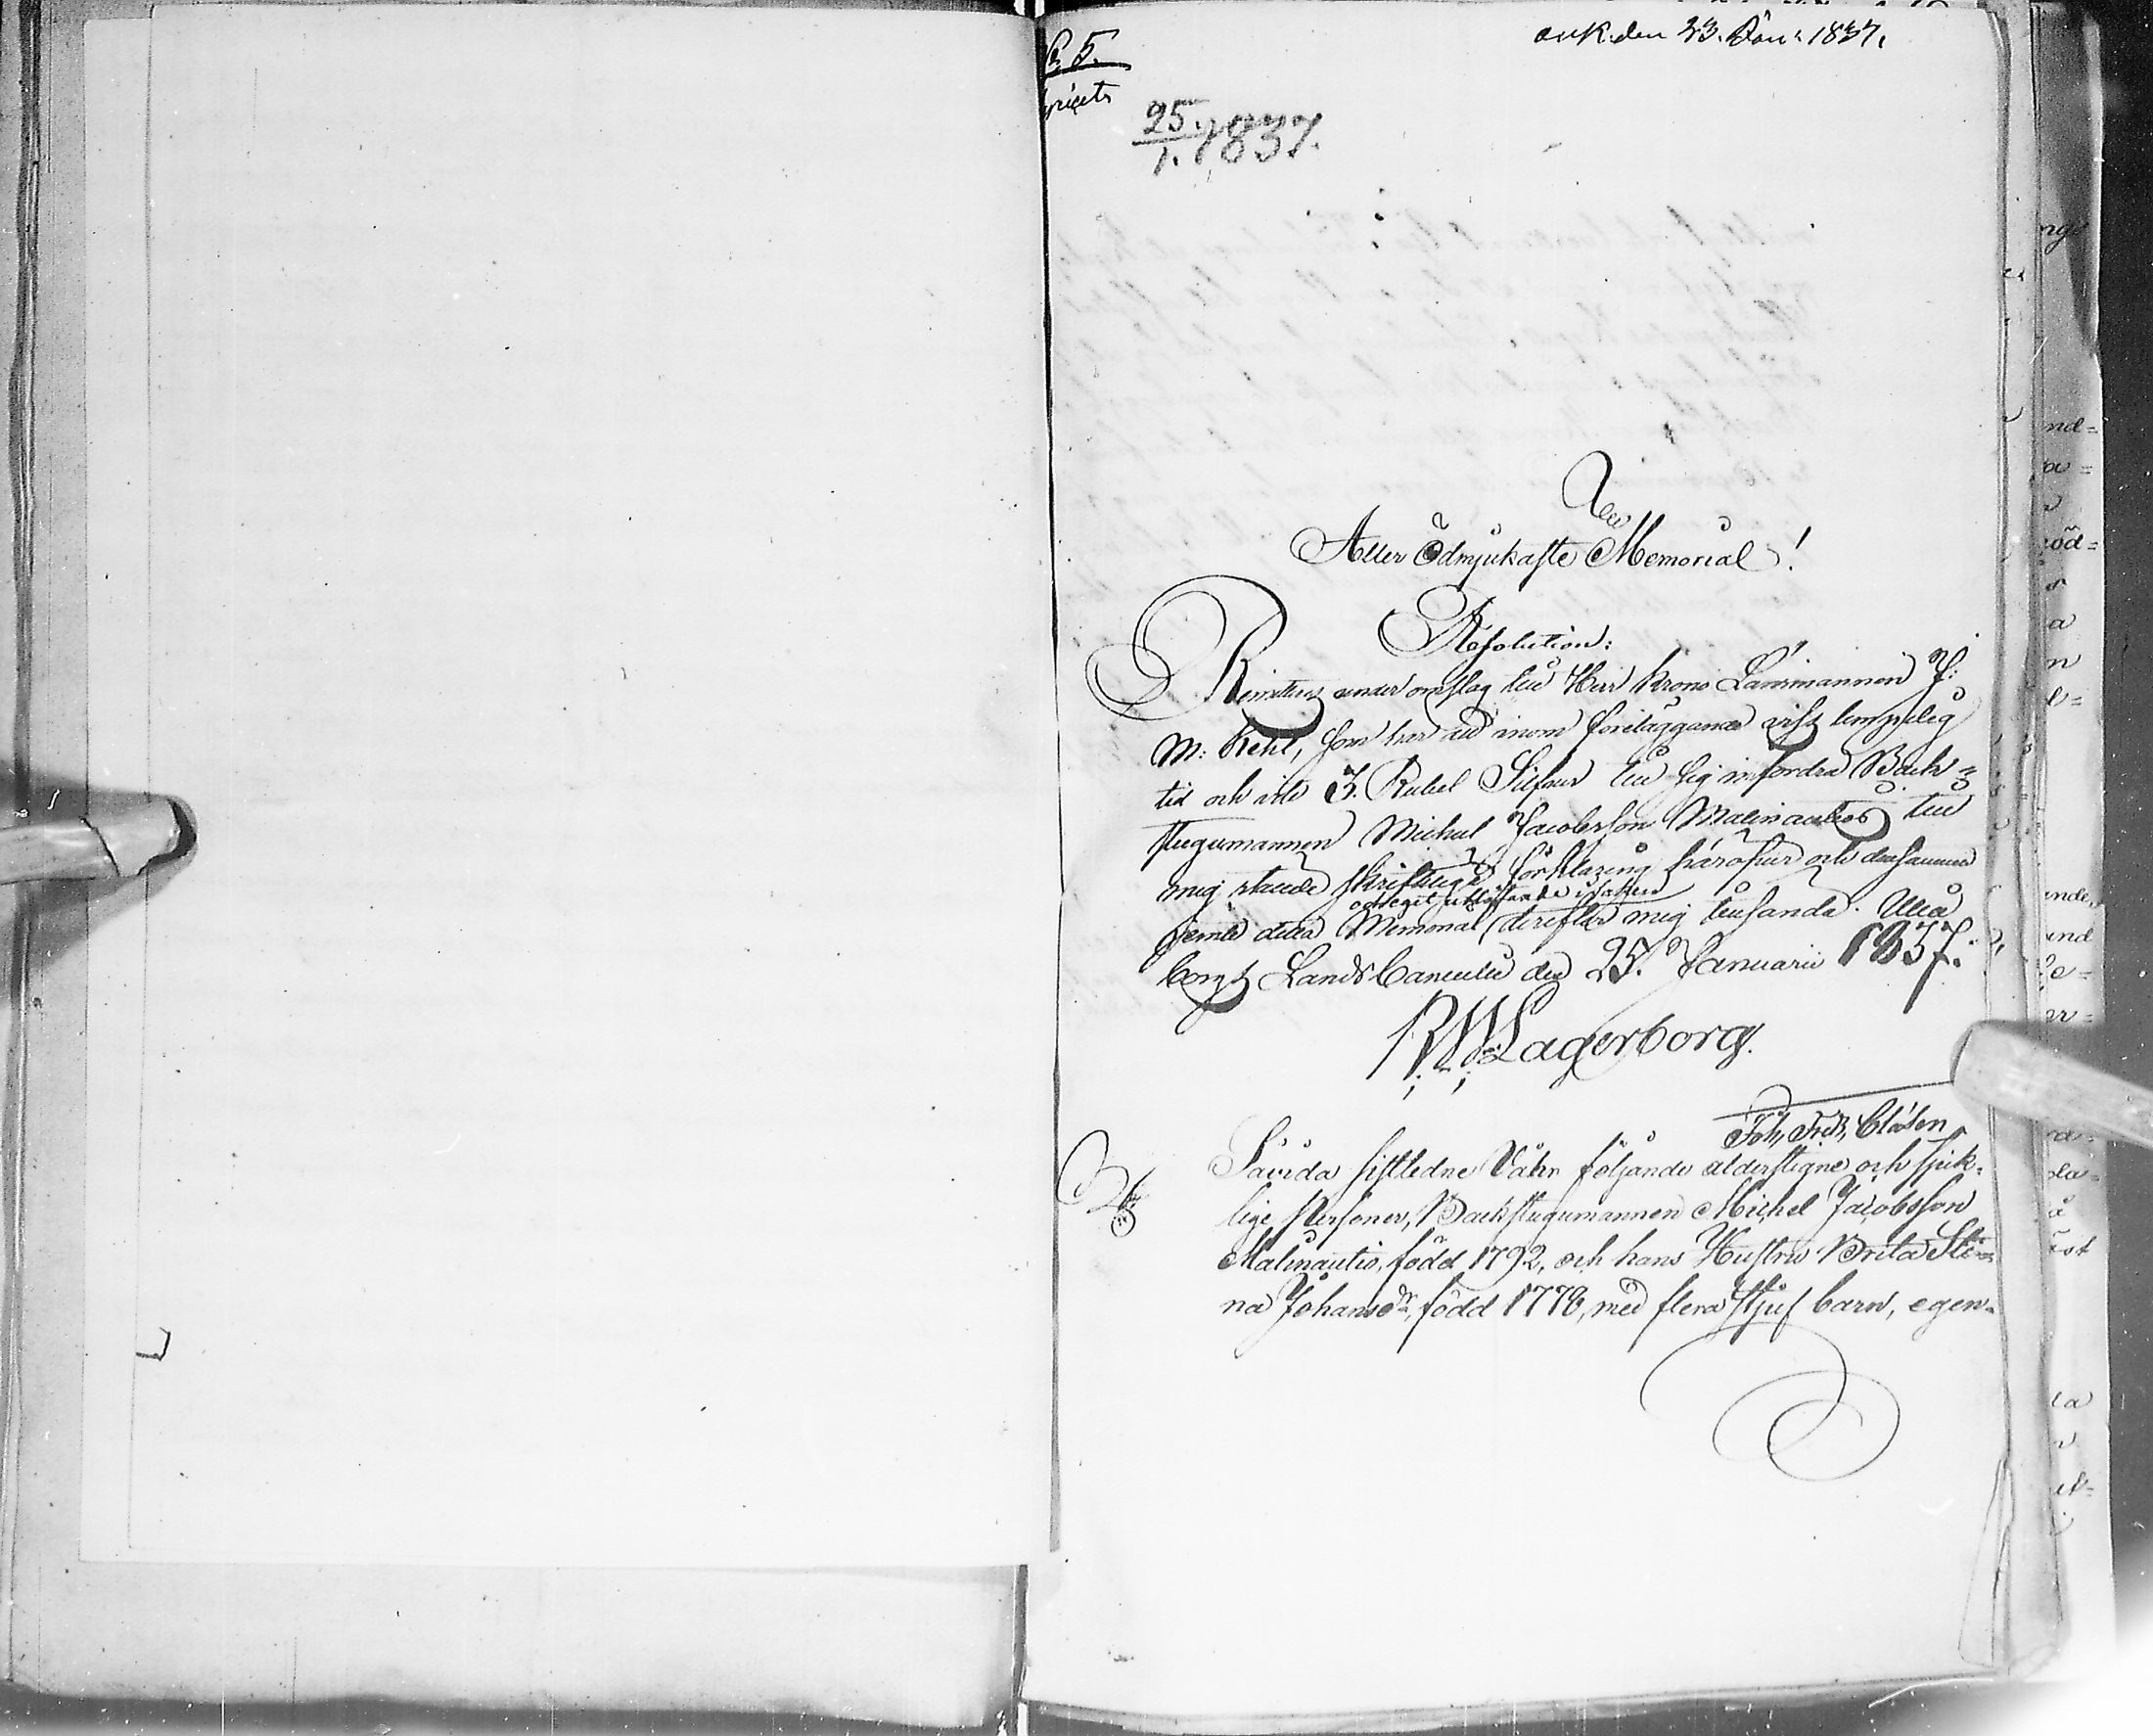 ank. den 23. Jan: 1837.
N: 5.
25/1. 1837.
Aller Ödmjukaste Memorial!
Resolution:
Remitteras under omslag till Herr Krono Länsmannen J:
M: Kehl, som har att inom föreläggande viss lämpelig
tid och vite 3. Rubel Silfver till sig infordra Back=
stugumannen Michel Jacobsson Malinautios till
mig stälde skriftliga förklaring häröfver och densamma
och eget utlåtande i saken
jemte detta Memorial derefter mig tillsända. Uleå
borgs LandsCancellie den 25. Januarii 1837.
RW Lagerborg.
Joh, Fred, Clásen
Såvida sistledne Vår följande ålderstigne och sjuk-
lige Personer, Backstugumannen Michel Jacobsson
Malinautio, född 1792, och hans Hustru Brita Sti=
na Johansdr, född 1778, med flera Stjuf barn, egen-